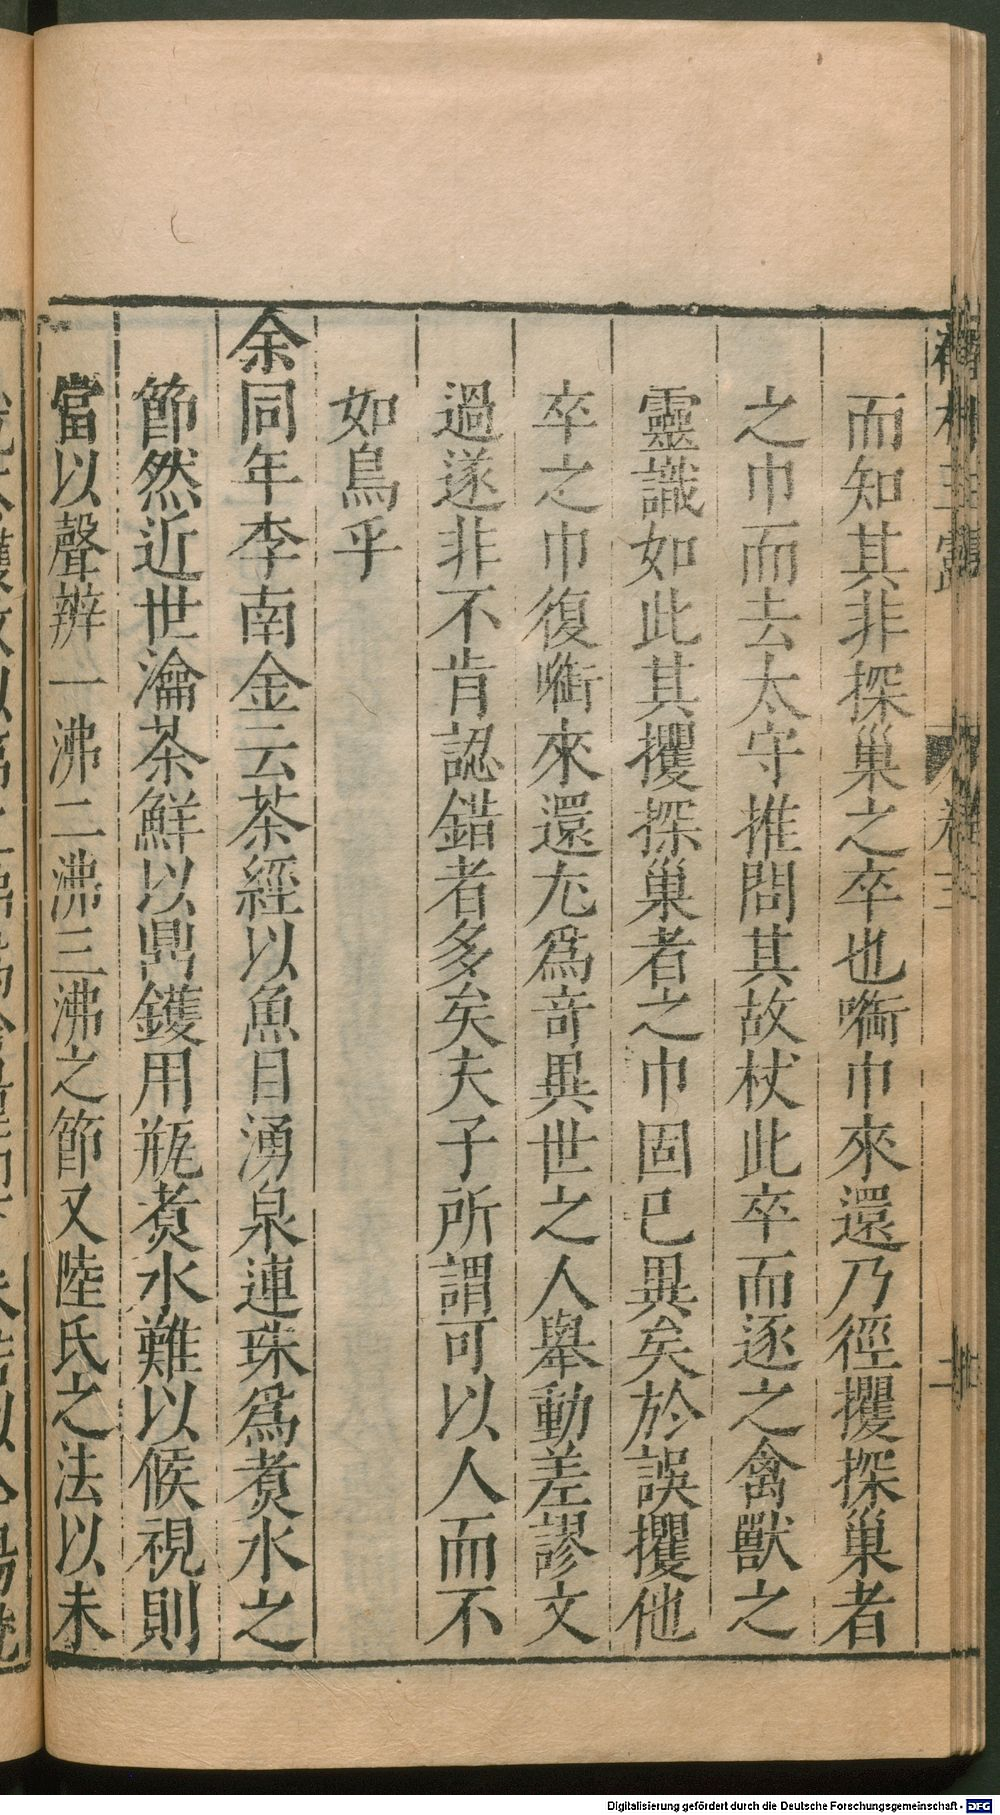 而知其非探巢之卒也㗸巾來還乃徑攫探巢者
之巾而去太守推問其故杖此卒而逐之禽獸之
靈識如此其攫探巢者之巾固已異矣於誤攫他
卒之巾復㗸來還尢爲竒異世之人舉動差謬文
過遂非不肯認錯者多矣夫子所謂可以人而不
如鳥乎
余同年李南金云茶經以魚目湧泉連珠爲煑水之
節然近世瀹茶鮮以鼎鑊用瓶煑水難以候視則
當以聲辨一沸二沸三沸之節又陸氏之法以未
Digitalisierung gefördert durch die Deutsche Forschungsgemeinschaft - DFG